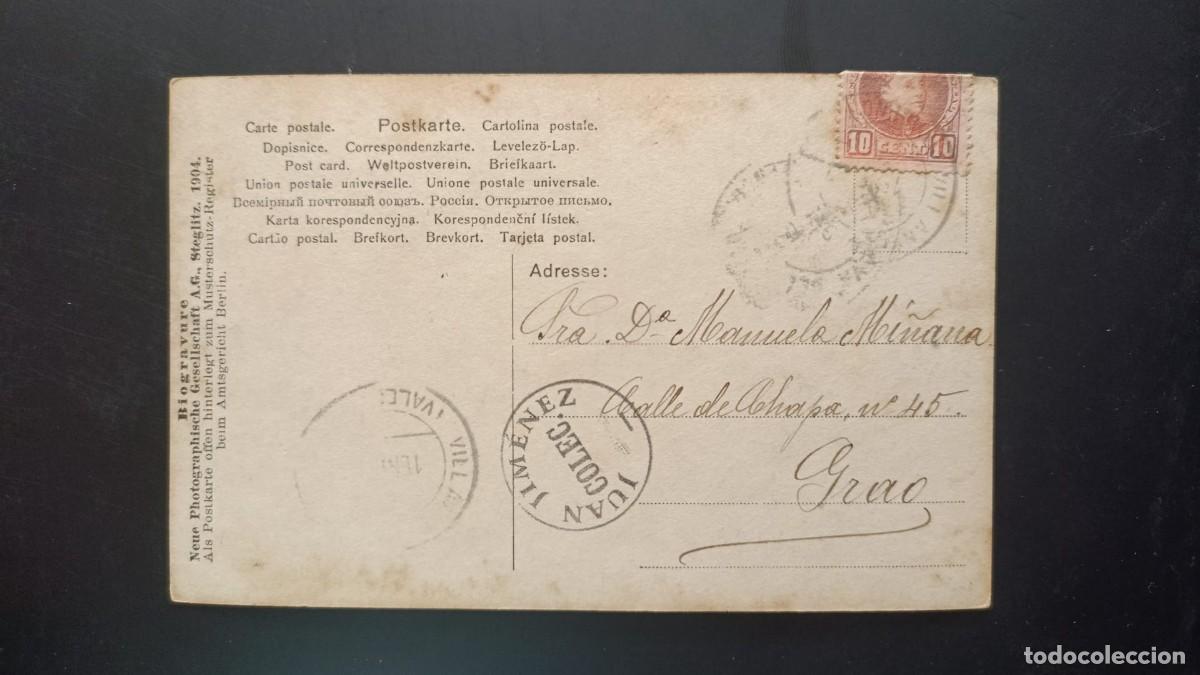 Carte postale. Postkarte. Cartolina postale.
Dopisnice. Correspondenzkarte. Levelező-Lap.
Post card. Weltpostverein. Briefkaart.
Union postale universelle. Unione postale universale.
Всемірный почтовый союзъ. Россія. Открытое письмо.
Karta korespondencyjna. Korespondenční lístek.
Cartão postal. Brefkort. Brevkort. Tarjeta postal.
Biogravure
Neue Photographische Gesellschaft A.G., Steglitz. 1904.
Als Postkarte offen hinterlegt zum Musterschutz-Register
beim Amtsgericht Berlin.
10 CENT. 10
Adresse:
Sra. Dª Manuela Miñana
Calle de Chapa, nº 45.
Grao
JUAN JIMÉNEZ
COLEC.
todocoleccion